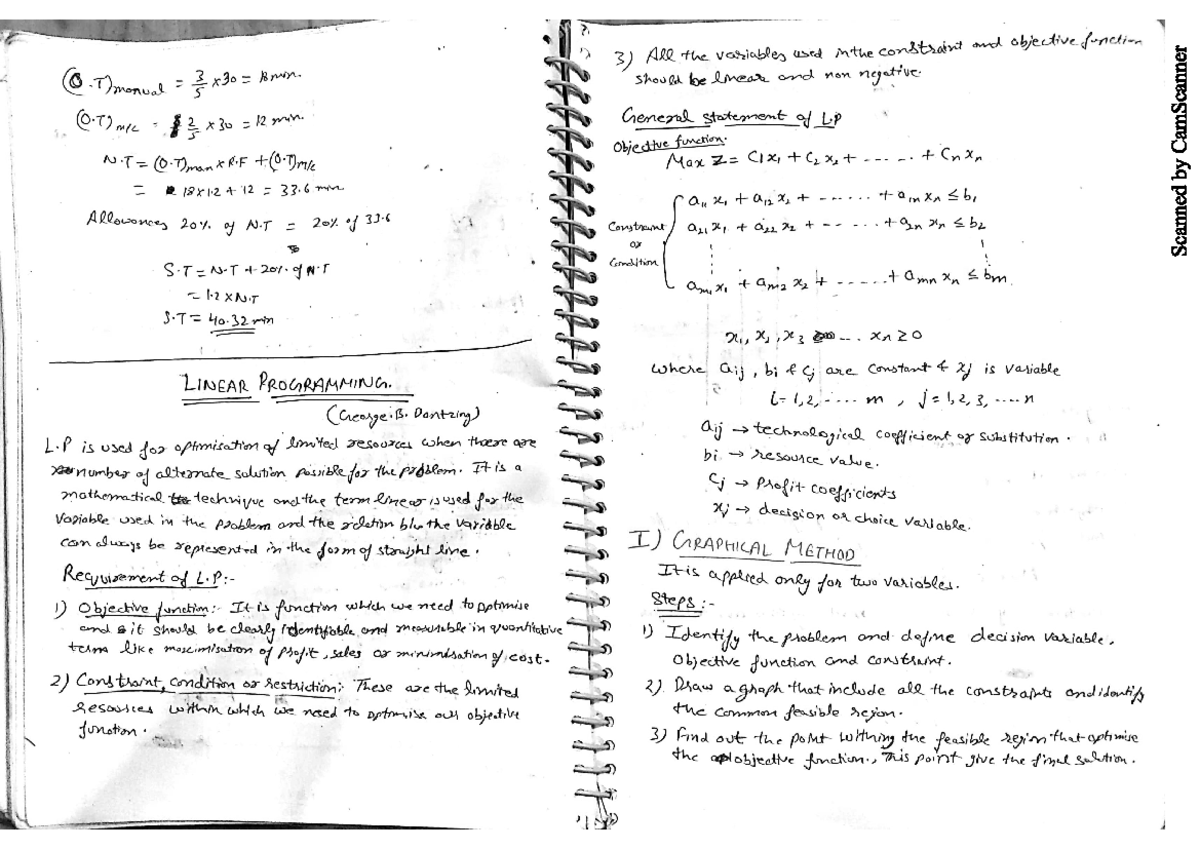 (O.T)manual = 3/5 x 30 = 18 min.
(O.T)m/c = 2/5 x 30 = 12 min.
N.T = (O.T)man x R.F + (O.T)m/c
= 18 x 1.2 + 12 = 33.6 min
Allowances 20% of N.T = 20% of 33.6
S.T = N.T + 20% of N.T
= 1.2 x N.T
S.T = 40.32 min
LINEAR PROGRAMMING.
(George.B. Dantzing)
L.P is used for optimisation of limited resources when there are
number of alternate solution possible for the problem. It is a
mathematical technique and the term linear is used for the
variable used in the problem and the relation b/w the variable
can always be represented in the form of straight line.
Requirement of L.P:-
1) Objective function:- It is function which we need to optimise
and it should be clearly identifiable and measurable in quantitative
term like maximisation of profit, sales or minimisation of cost.
2) Constraint, condition or restriction:- These are the limited
resources within which we need to optimise our objective
function.
3) All the variables used in the constraint and objective function
should be linear and non negative.
General statement of L.P
Objective function.
Max Z = C1x1 + C2x2 + ------ + Cnxn
a11 x1 + a12 x2 + ------ + a1n xn ≤ b1
Constraint or Condition
a21 x1 + a22 x2 + ------ + a2n xn ≤ b2
am1 x1 + am2 x2 + ------ + amn xn ≤ bm
x1, x2, x3 ---- xn ≥ 0
where aij, bi & cj are constant & xj is variable
i = 1,2,---- m, j = 1,2,3,---- n
aij → technological coefficient or substitution.
bi → resource value.
Cj → Profit coefficients
xj → decision or choice variable.
I) GRAPHICAL METHOD
It is applied only for two variables.
Steps:-
1) Identify the problem and define decision variable,
Objective function and constraint.
2) Draw a graph that include all the constraints and identify
the common feasible region.
3) Find out the point withing the feasible region that optimise
the objective function., This point give the final solution.
Scanned by CamScanner